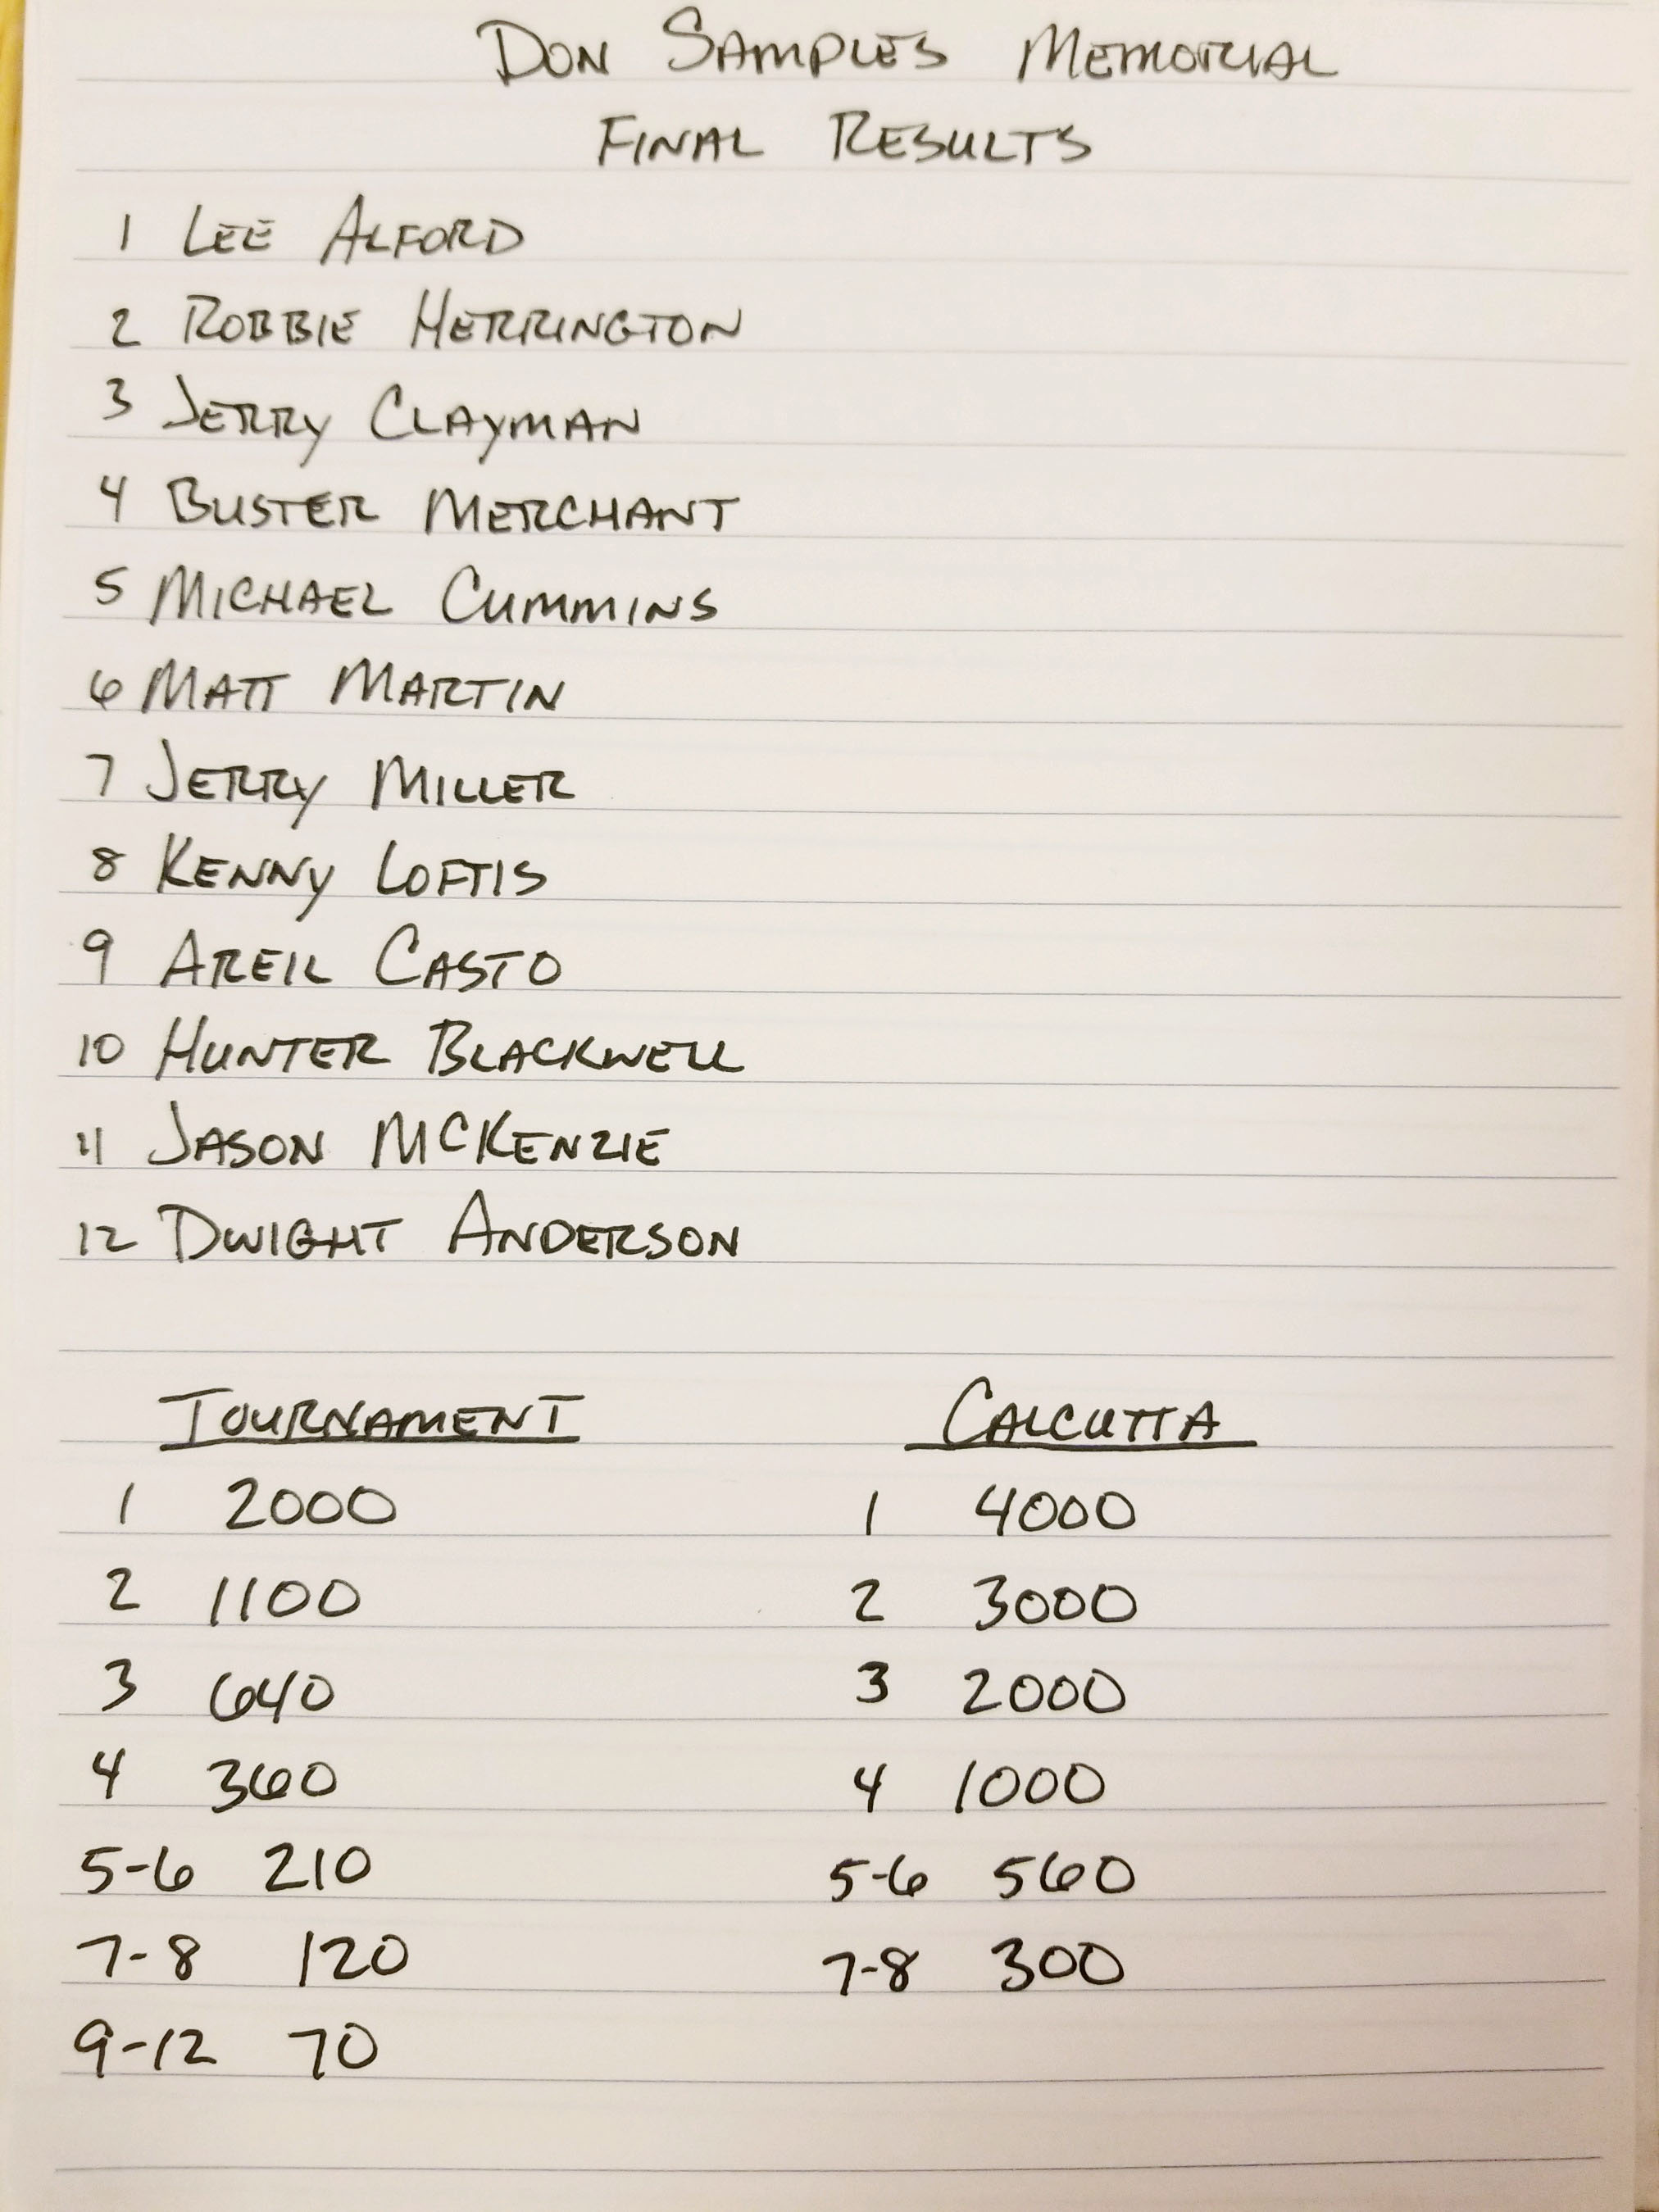 DON SAMPLES MEMORIAL
FINAL RESULTS
1 LEE ALFORD
2 ROBBIE HERRINGTON
3 JERRY CLAYMAN
4 BUSTER MERCHANT
5 MICHAEL CUMMINS
6 MATT MARTIN
7 JERRY MILLER
8 KENNY LOFTIS
9 AREIL CASTO
10 HUNTER BLACKWELL
11 JASON MCKENZIE
12 DWIGHT ANDERSON
TOURNAMENT CALCUTTA
1 2000 1 4000
2 1100 2 3000
3 640 3 2000
4 360 4 1000
5-6 210 5-6 560
7-8 120 7-8 300
9-12 70